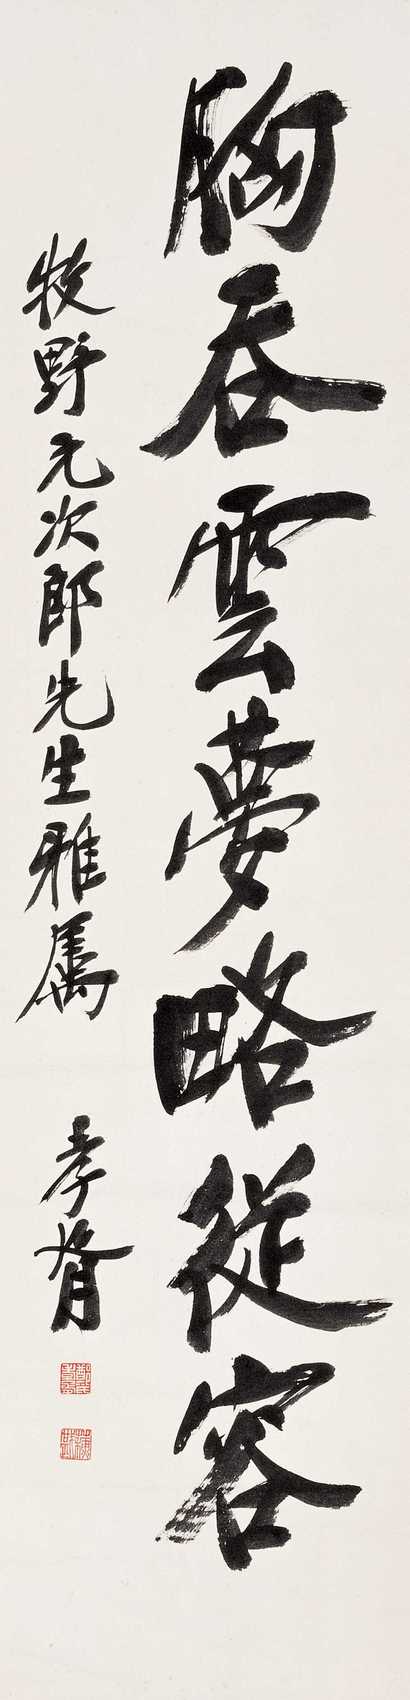 胸吞雲夢略從容
牧野元次郎先生雅屬
孝胥